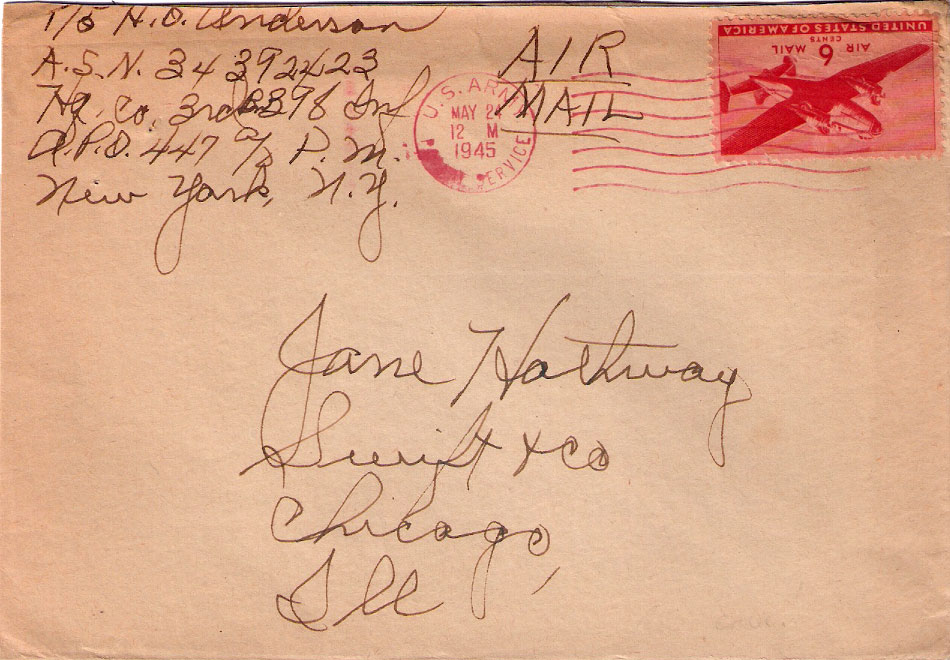 T/5 H.D. Anderson
A.S.N. 34392423
Hq. Co. 3rd Bn 376 Inf
A.P.O. 447 c/o P.M.
New York, N.Y.
AIR
MAIL
U.S. ARMY
MAY 24
12 M
1945
SERVICE
UNITED STATES OF AMERICA
6 CENTS
AIR MAIL
Jane Hathway
Swift + Co
Chicago,
Ill